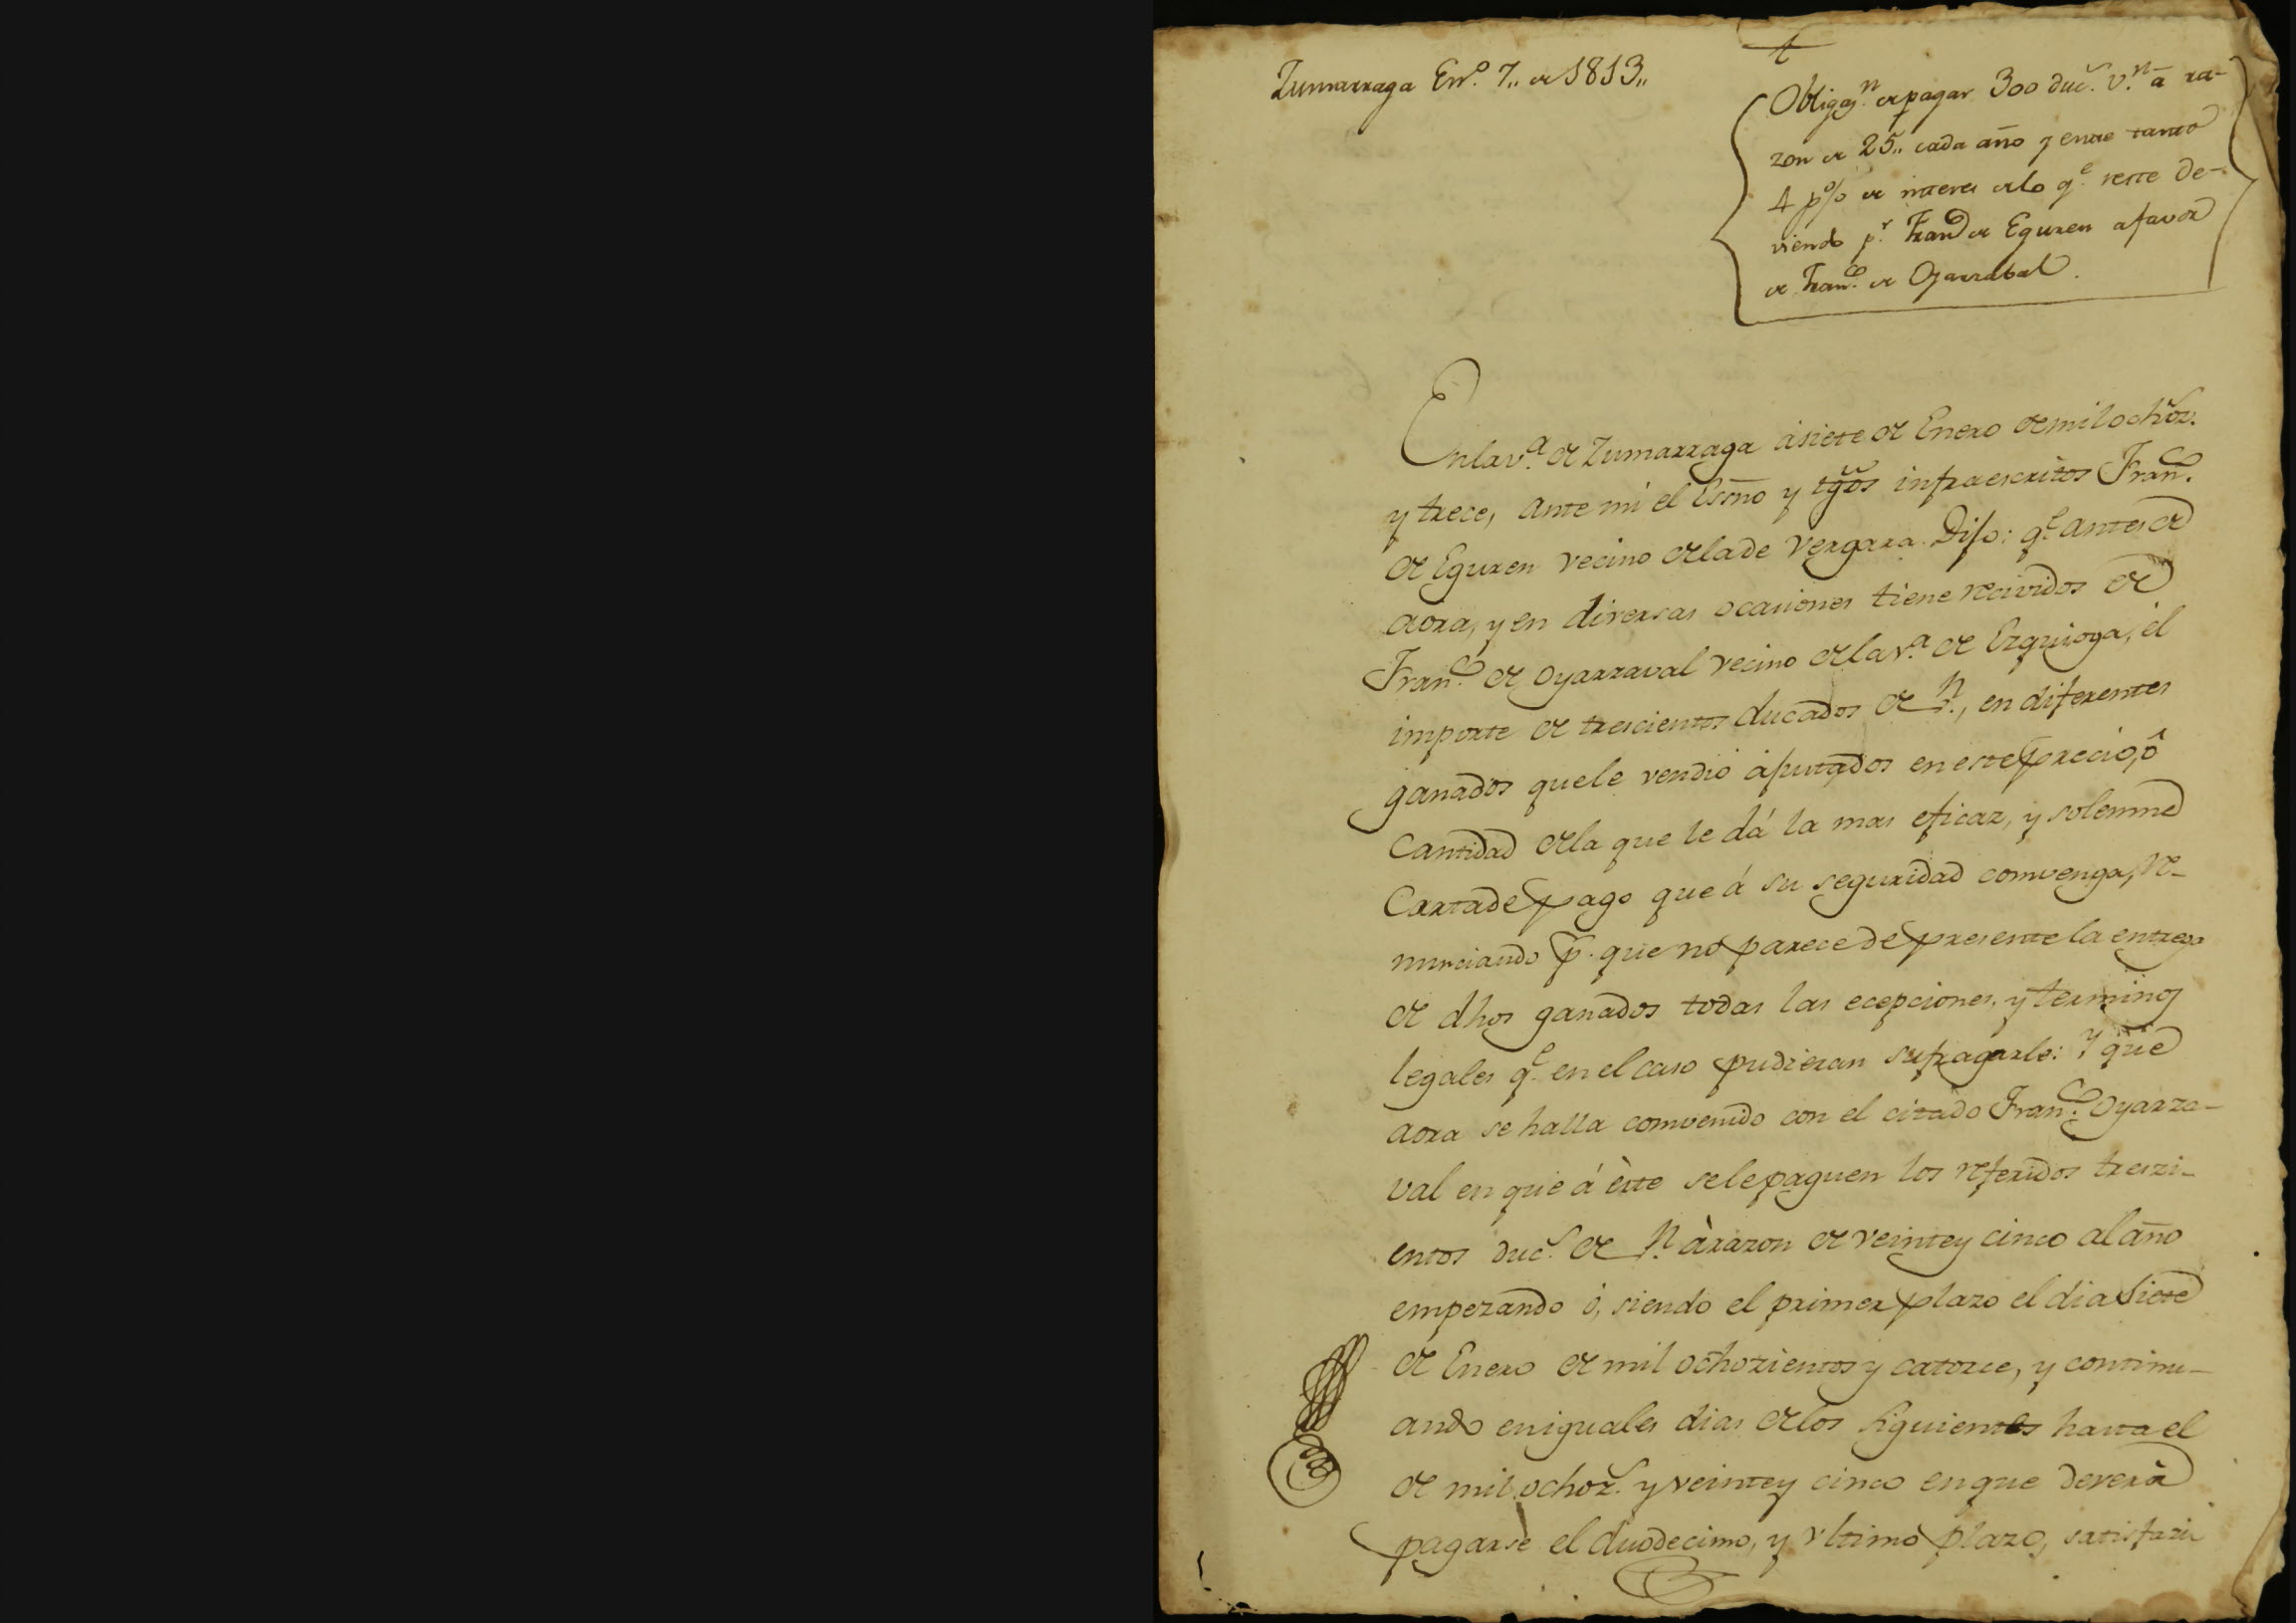 Zumarraga En.º 7,, de 1813,,
Obligaz.n de pagar 300 duc.s v.n á ra-
zon de 25,, cada año y entre tanto
4 p% de interes de lo q.e reste de-
viendo p.r Fran.co de Eguren a favor
de Fran.co de Oyarrabal.
En la v.a de Zumarraga á siete de Enero de mil ochoz.s
y trece, ante mi el Essno y tgos infraescritos Fran.co
de Eguren vecino de la de Vergara. Dijo: q.e antes de
aora, y en diversas ocasiones tiene recividos de
Fran.co de Oyarraval vecino de la v.a de Ezquioga, el
importe de trescientos ducados de v.n, en diferentes
ganados que le vendió ajustados en este precio, ó
Cantidad de la que le dá la mas eficaz, y solemne
Carta de pago que á su seguridad comvenga, re-
nunciando p.r que no parece de presente la entrega
de dhos ganados todas las ecepciones, y terminos
legales q.e en el caso pudieran sufragarle: Y que
aora se halla comvenido con el citado Fran.co Oyarra-
val en que á èste se le paguen los referidos treszi-
entos duc.s de v.n à razon de veinte y cinco al año
empezando ó, siendo el primer plazo el dia siete
de Enero de mil ochozientos y catorce, y continu-
ando en iguales dias de los siguientes hasta el
de mil ochoz.s y veinte y cinco en que deverà
pagarse el duodecimo, y vltimo plazo, satisfazi